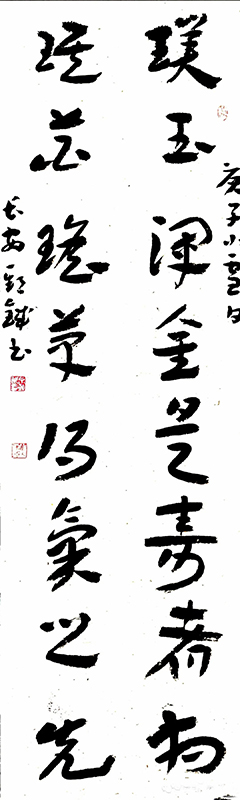 庚子小雪日
璞玉渾金是壽者相
琪花瑤草得氣之先
长安